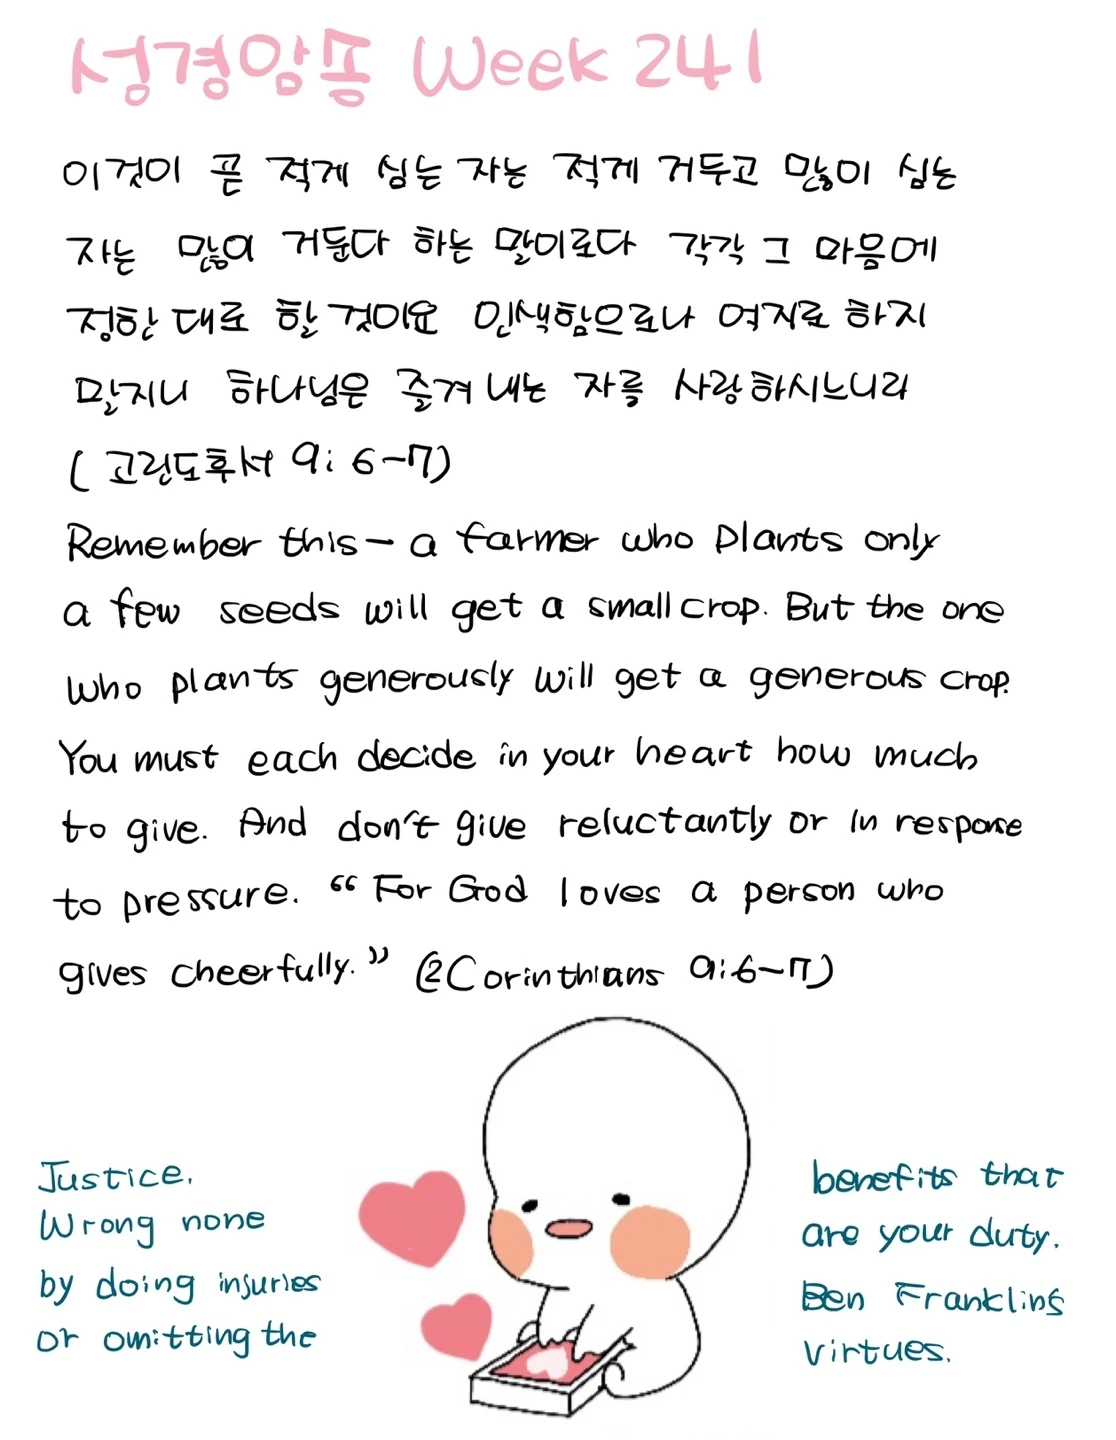 성경암송 Week 241
이것이 곧 적게 심는 자는 적게 거두고 많이 심는
자는 많이 거둔다 하는 말이로다 각각 그 마음에
정한 대로 할 것이요 인색함으로나 억지로 하지
말지니 하나님은 즐겨 내는 자를 사랑하시느니라
(고린도후서 9:6-7)
Remember this - a farmer who plants only
a few seeds will get a small crop. But the one
who plants generously will get a generous crop.
You must each decide in your heart how much
to give. And don't give reluctantly or in response
to pressure. "For God loves a person who
gives cheerfully." (2 Corinthians 9:6-7)
Justice.
Wrong none
by doing injuries
or omitting the
benefits that
are your duty.
Ben Franklin's
virtues.